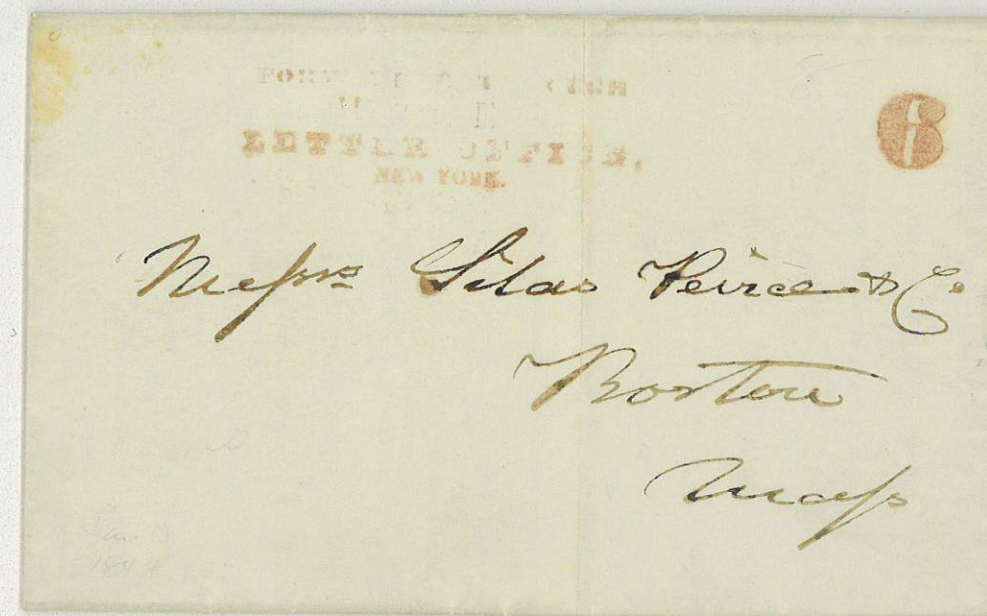 6
LETTER OFFICE,
NEW YORK.
Messrs Silas Peirce & Co
Boston
Mass
184